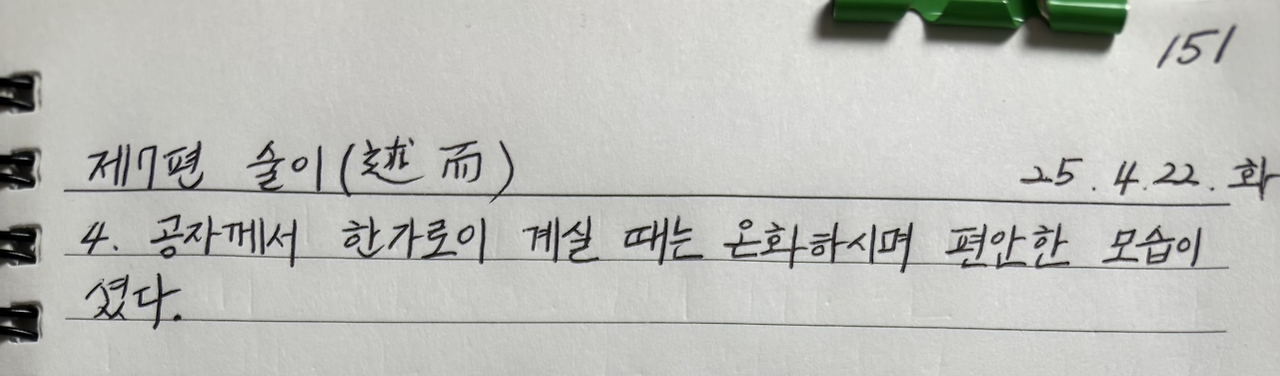 151
제7편 술이(述而) 25.4.22.화
4. 공자께서 한가로이 계실 때는 온화하시며 편안한 모습이
셨다.